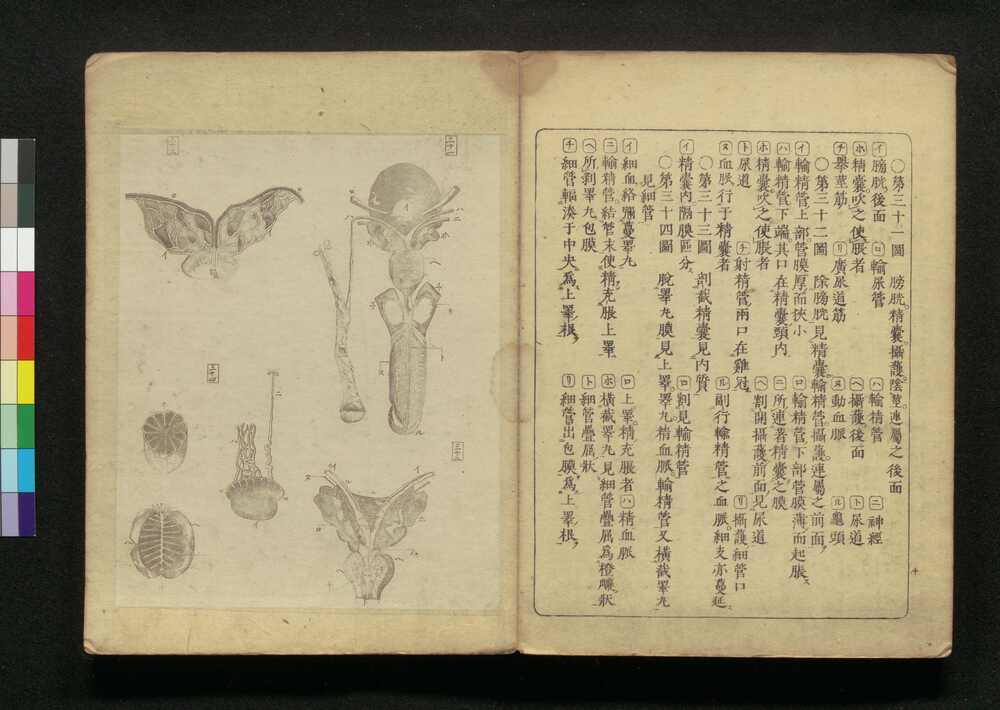 ○第三十一圖 膀胱精囊攝護陰莖連屬之後面
イ膀胱後面 ロ輸尿管 ハ輸精管 ニ神經
ホ精囊吹之使脹者 ヘ攝護後面 ト尿道
チ擧莖筋 リ廣尿道筋 ヌ動血脈 ル龜頭
○第三十二圖 除膀胱見精囊輸精管攝護連屬之前面
イ輸精管上部管膜厚而狹小 ロ輸精管下部管膜薄而起脹
ハ輸精管下端其口在精囊頸内 ニ所連著精囊之膜
ホ精囊吹之使脹者 ヘ割開攝護前面見尿道
ト尿道 チ射精管兩口在雞冠 リ攝護細管口
ヌ血脈行于精囊者 ル副行輸精管之血脈細支亦蔓延
○第三十三圖 剖截精囊見内質
イ精囊内隔膜區分 ロ割見輸精管
○第三十四圖 脫睪丸膜見上睪睪丸精血脈輸精管又橫截睪丸
見細管
イ細血絡彌蔓睪丸 ロ上睪精充脹者 ハ精血脈
ニ輸精管結紮末使精充脹上睪 ホ橫截睪丸見細管疊屬爲橙瓤狀
ヘ所剝睪丸包膜 ト細管疊屬狀
チ細管輻湊于中央爲上睪根 リ細管出包膜爲上睪根
三十一
三十二
三十三
三十四